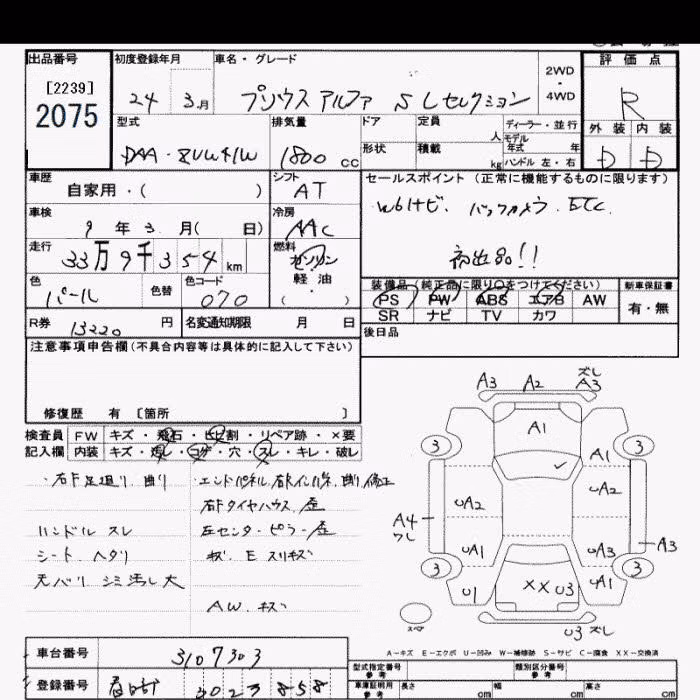 出品番号 初度登録年月 車名・グレード 評価点
[2239]
2075
24 3月 プリウス アルファ SLセレクション 2WD・4WD R
型式 排気量 ドア 定員 人 ディーラー・並行 外装 内装
DAA・ZVW41W 1800cc 形状 積載 kg モデル年式 年 ハンドル 左・右 D D
車歴 シフト セールスポイント(正常に機能するものに限ります)
自家用・( ) AT
車検 冷房 W61ナビ. バックカメラ. ETC.
9年3月( 日) AAC
走行 燃料 初出品!!
33万9千354km ガソリン
軽油
( )
色 色替 色コード 装備品(純正品に限り○をつけてください) 新車保証書
パール 070 PS PW ABS エアB AW 有・無
SR ナビ TV カワ
R券 13220円 名変通知期限 月 日 後日品
注意事項申告欄(不具合内容等は具体的に記入して下さい)
修復歴 有 〔箇所 〕
検査員 FW キズ・飛石・ヒビ割・リペア跡・×要
記入欄 内装 キズ・汚レ・コゲ・穴・スレ・キレ・破レ
・右F足廻り 曲り ・エンドパネル. 右Fインパネ. 曲り 修正
右Fタイヤハウス. 歪
ハンドル スレ 左センターピラー 歪
シート ヘタリ キズ E スリキズ
天バリ シミ汚レ大
AW. キズ
A3 A2 ズレ A3
A1
3 A1 3
UA2 UA2
A4 ワレ
UA1 UA3 A3
3 UA1 3
U1 XX U3
スペア U3 ズレ
A-キズ E-エクボ U-凹み W-補修跡 S-サビ C-腐食 XX-交換済
車台番号 3107303
型式指定番号 参考 類別区分番号 参考
登録番号 春日部 3023858
車庫証明用 参考 長さ cm 幅 cm 高さ cm